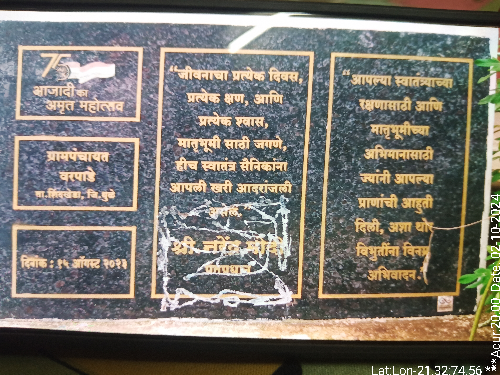 75
आज़ादी का
अमृत महोत्सव
ग्रामपंचायत
वरपाडे
ता.शिंदखेडा, जि.धुळे
दिनांक : १५ ऑगस्ट २०२३
“जीवनाचा प्रत्येक दिवस,
प्रत्येक क्षण, आणि
प्रत्येक श्वास,
मातृभूमी साठी जगणे,
हीच स्वातंत्र सैनिकांना
आपली खरी आदरांजली
असेल.
श्री नरेंद्र मोदी
पंतप्रधान
“आपल्या स्वातंत्र्याच्या
रक्षणासाठी आणि
मातृभूमीच्या
अभिमानासाठी
ज्यांनी आपल्या
प्राणांची आहुती
दिली, अशा थोर
विभुतींना विनम्र
अभिवादन.
Lat:Lon-21.32:74.56
**Acur:20.00 Date:02-10-2024